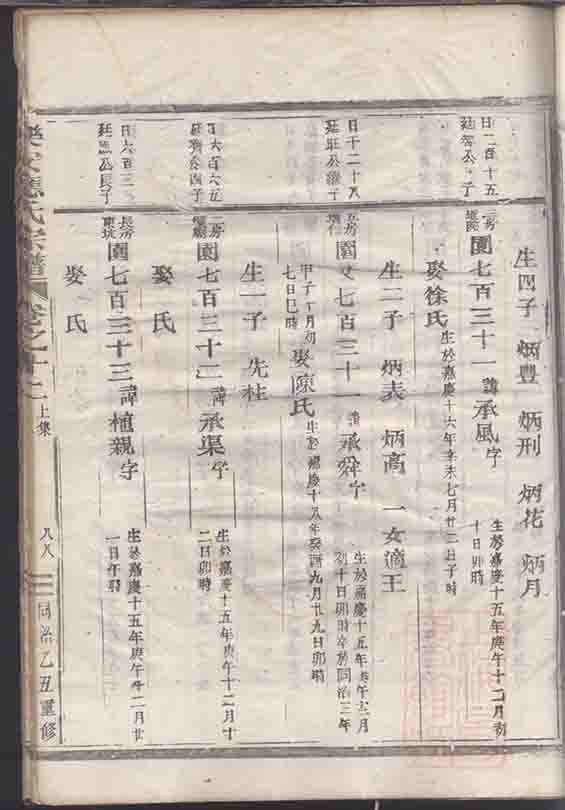 生四子 炳豐 炳刑 炳花 炳月
日二百十五
廷 公 子
二房
園七百三十一諱承風字
生於嘉慶十五年庚午十二月初
十日卯時
娶徐氏
生於嘉慶十六年辛未七月廿二日子時
生二子 炳表 炳高 一女適王
日千二十八
廷旺公 子
園又七百三十一諱承舜字
生於嘉慶十五年庚午十二月
初十日卯時卒於同治三年
甲子十月初
七日巳時
娶陳氏
生於嘉慶十八年癸酉九月廿九日卯時
生一子 先柱
日六百六五
廷 公四子
二房
園七百三十二諱承渠字
生於嘉慶十五年庚午十二月十
二日卯時
娶 氏
日六百三
廷 公長子
長房
東坑
園七百三十三諱植親字
生於嘉慶十五年庚午十二月廿
一日午時
娶 氏
氏宗譜 卷之十二 上集
八八
同治乙丑重修